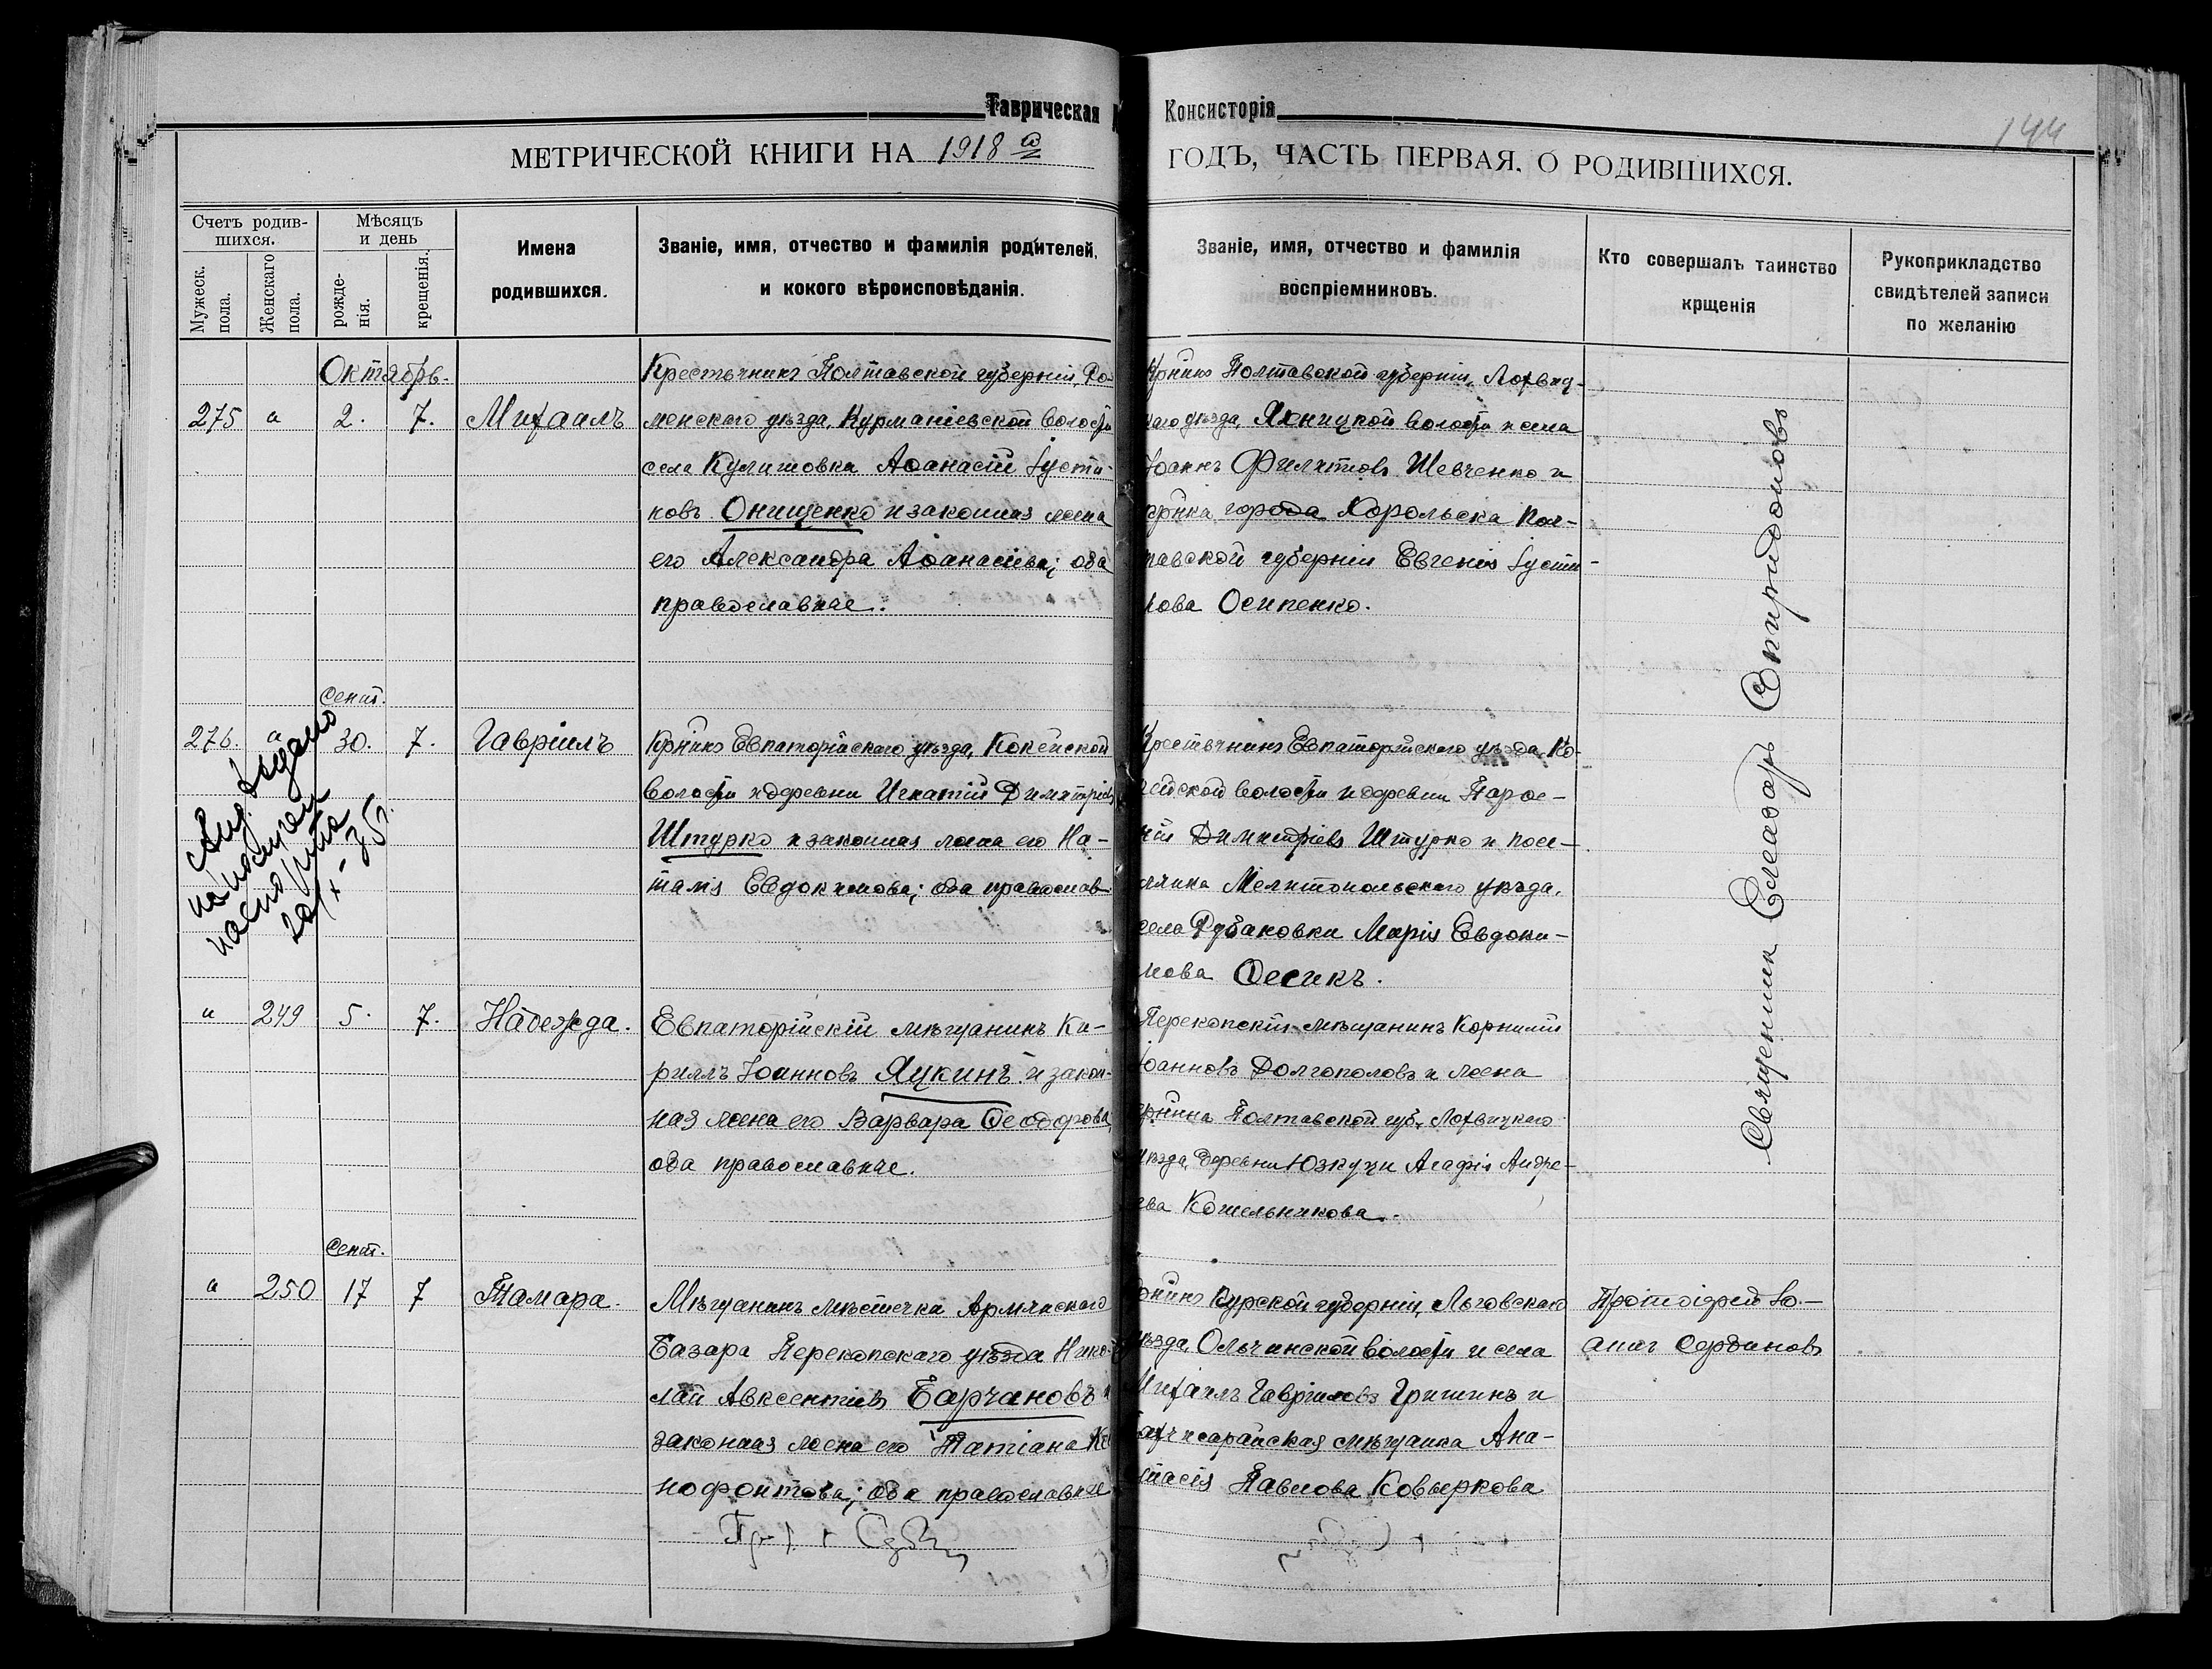 Таврическая
Консисторія
144
МЕТРИЧЕСКОЙ КНИГИ НА 1918 й
ГОДЪ, ЧАСТЬ ПЕРВАЯ. О РОДИВШИХСЯ.
Счетъ родив-
шихся.
Мужеск.
пола.
Женскаго
пола.
Мѣсяцъ
и день
рожде-
нія.
крещенія.
Имена
родившихся.
Званіе, имя, отчество и фамилія родителей,
и кокого вѣроисповѣданія.
Званіе, имя, отчество и фамилія
воспріемниковъ.
Кто совершалъ таинство
крщенія
Рукоприкладство
свидѣтелей записи
по желанію
Октябрь.
275 " 2. 7. Михаилъ
Крестьянинъ Полтавской губерніи, Ро-
менскаго уѣзда, Курманіевской волости
села Кулишовка Аѳанасій Іусти-
новъ Онищенко и законная жена
его Александра Аѳанасіева; оба
православные.
Кр҃нинъ Полтавской губерніи, Лохвиц-
каго уѣзда, Яхницкой волости и села
Іоаннъ Филиппов Шевченко и
кр҃нка города Хорольска Пол-
тавской губерніи Евгенія Іусти-
нова Осипенко.
Сент.
276. " 30. 7. Гавріилъ
Кр҃нинъ Евпаторійскаго уѣзда, Кокейской
волости и деревни Игнатій Димитріевъ
Штурко и законная жена его На-
талія Евдокимова; оба православ.
Крестьянинъ Евпаторійскаго уѣзда, Ко-
кейской волости и деревни Парѳе-
ній Димитріевъ Штурко и посе-
лянка Мелитопольскаго уѣзда,
села Рубановки Марія Евдоки-
мова Фесикъ.
выдано
20/X-35г.
" 249 5. 7. Надежда.
Евпаторійскій мѣщанинъ Ки-
риллъ Іоанновъ Яцкинъ и закон-
ная жена его Варвара Ѳеодорова,
оба православные.
Перекопскій мѣщанинъ Корнилій
Іоанновъ Долгополовъ и жена
кр҃нина Полтавской губ., Лохвицкаго
уѣзда, деревни Юзкущи Агафія Андре-
ева Котельникова.
Священник Елеазаръ Спиридоновъ
Сент.
" 250 17 7 Тамара.
Мѣщанинъ мѣстечка Армянскаго
Базара Перекопскаго уѣзда Нико-
лай Авксентіевъ Барчановъ и
законная жена его Татіана Ксе-
нофонтова; оба православные
Кр҃нинъ Курской губерніи, Льговскаго
уѣзда, Ольчинской волости и села
Михаилъ Гавриловъ Гришинъ и
Бахчисарайская мѣщанка Ана-
стасія Павлова Ковыркова
Протоіерей Іо-
аннъ Сербиновъ